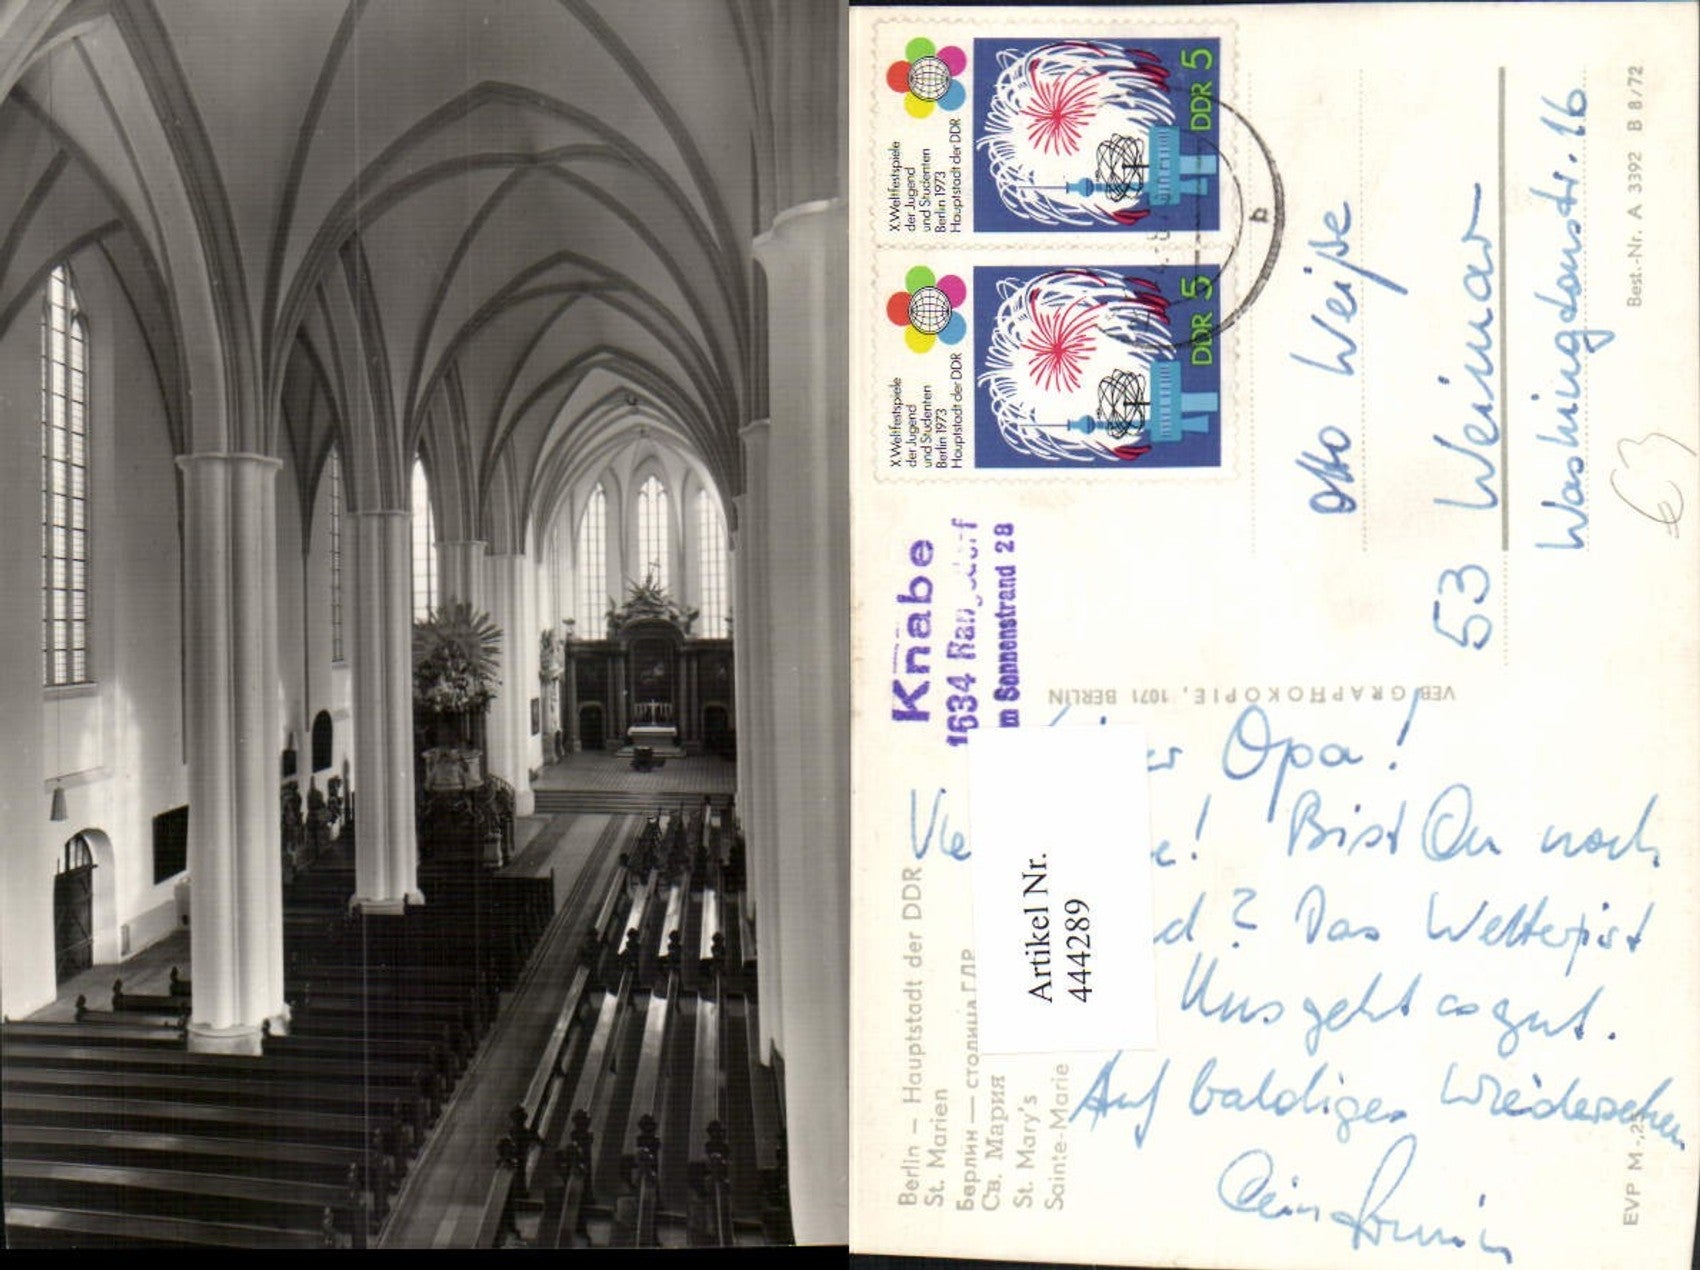 Berlin – Hauptstadt der DDR
St. Marien
Берлин — столица ГДР
Св. Мария
St. Mary's
Sainte-Marie
Knabe
1634
Sonnenstrand 28
Opa!
Bist Du noch
? Das Wetter ist
Uns geht es gut.
Auf baldiges Wiedersehen
Dein
Artikel Nr.
444289
VEB GRAPHOKOPIE, 1071 BERLIN
X. Weltfestspiele
der Jugend
und Studenten
Berlin 1973
Hauptstadt der DDR
DDR 5
X. Weltfestspiele
der Jugend
und Studenten
Berlin 1973
Hauptstadt der DDR
DDR 5
b
Otto Weiße
53 Weimar
Washingdonstr. 16
€ 3
EVP M -,25
Best.-Nr. A 3392 B 8/72